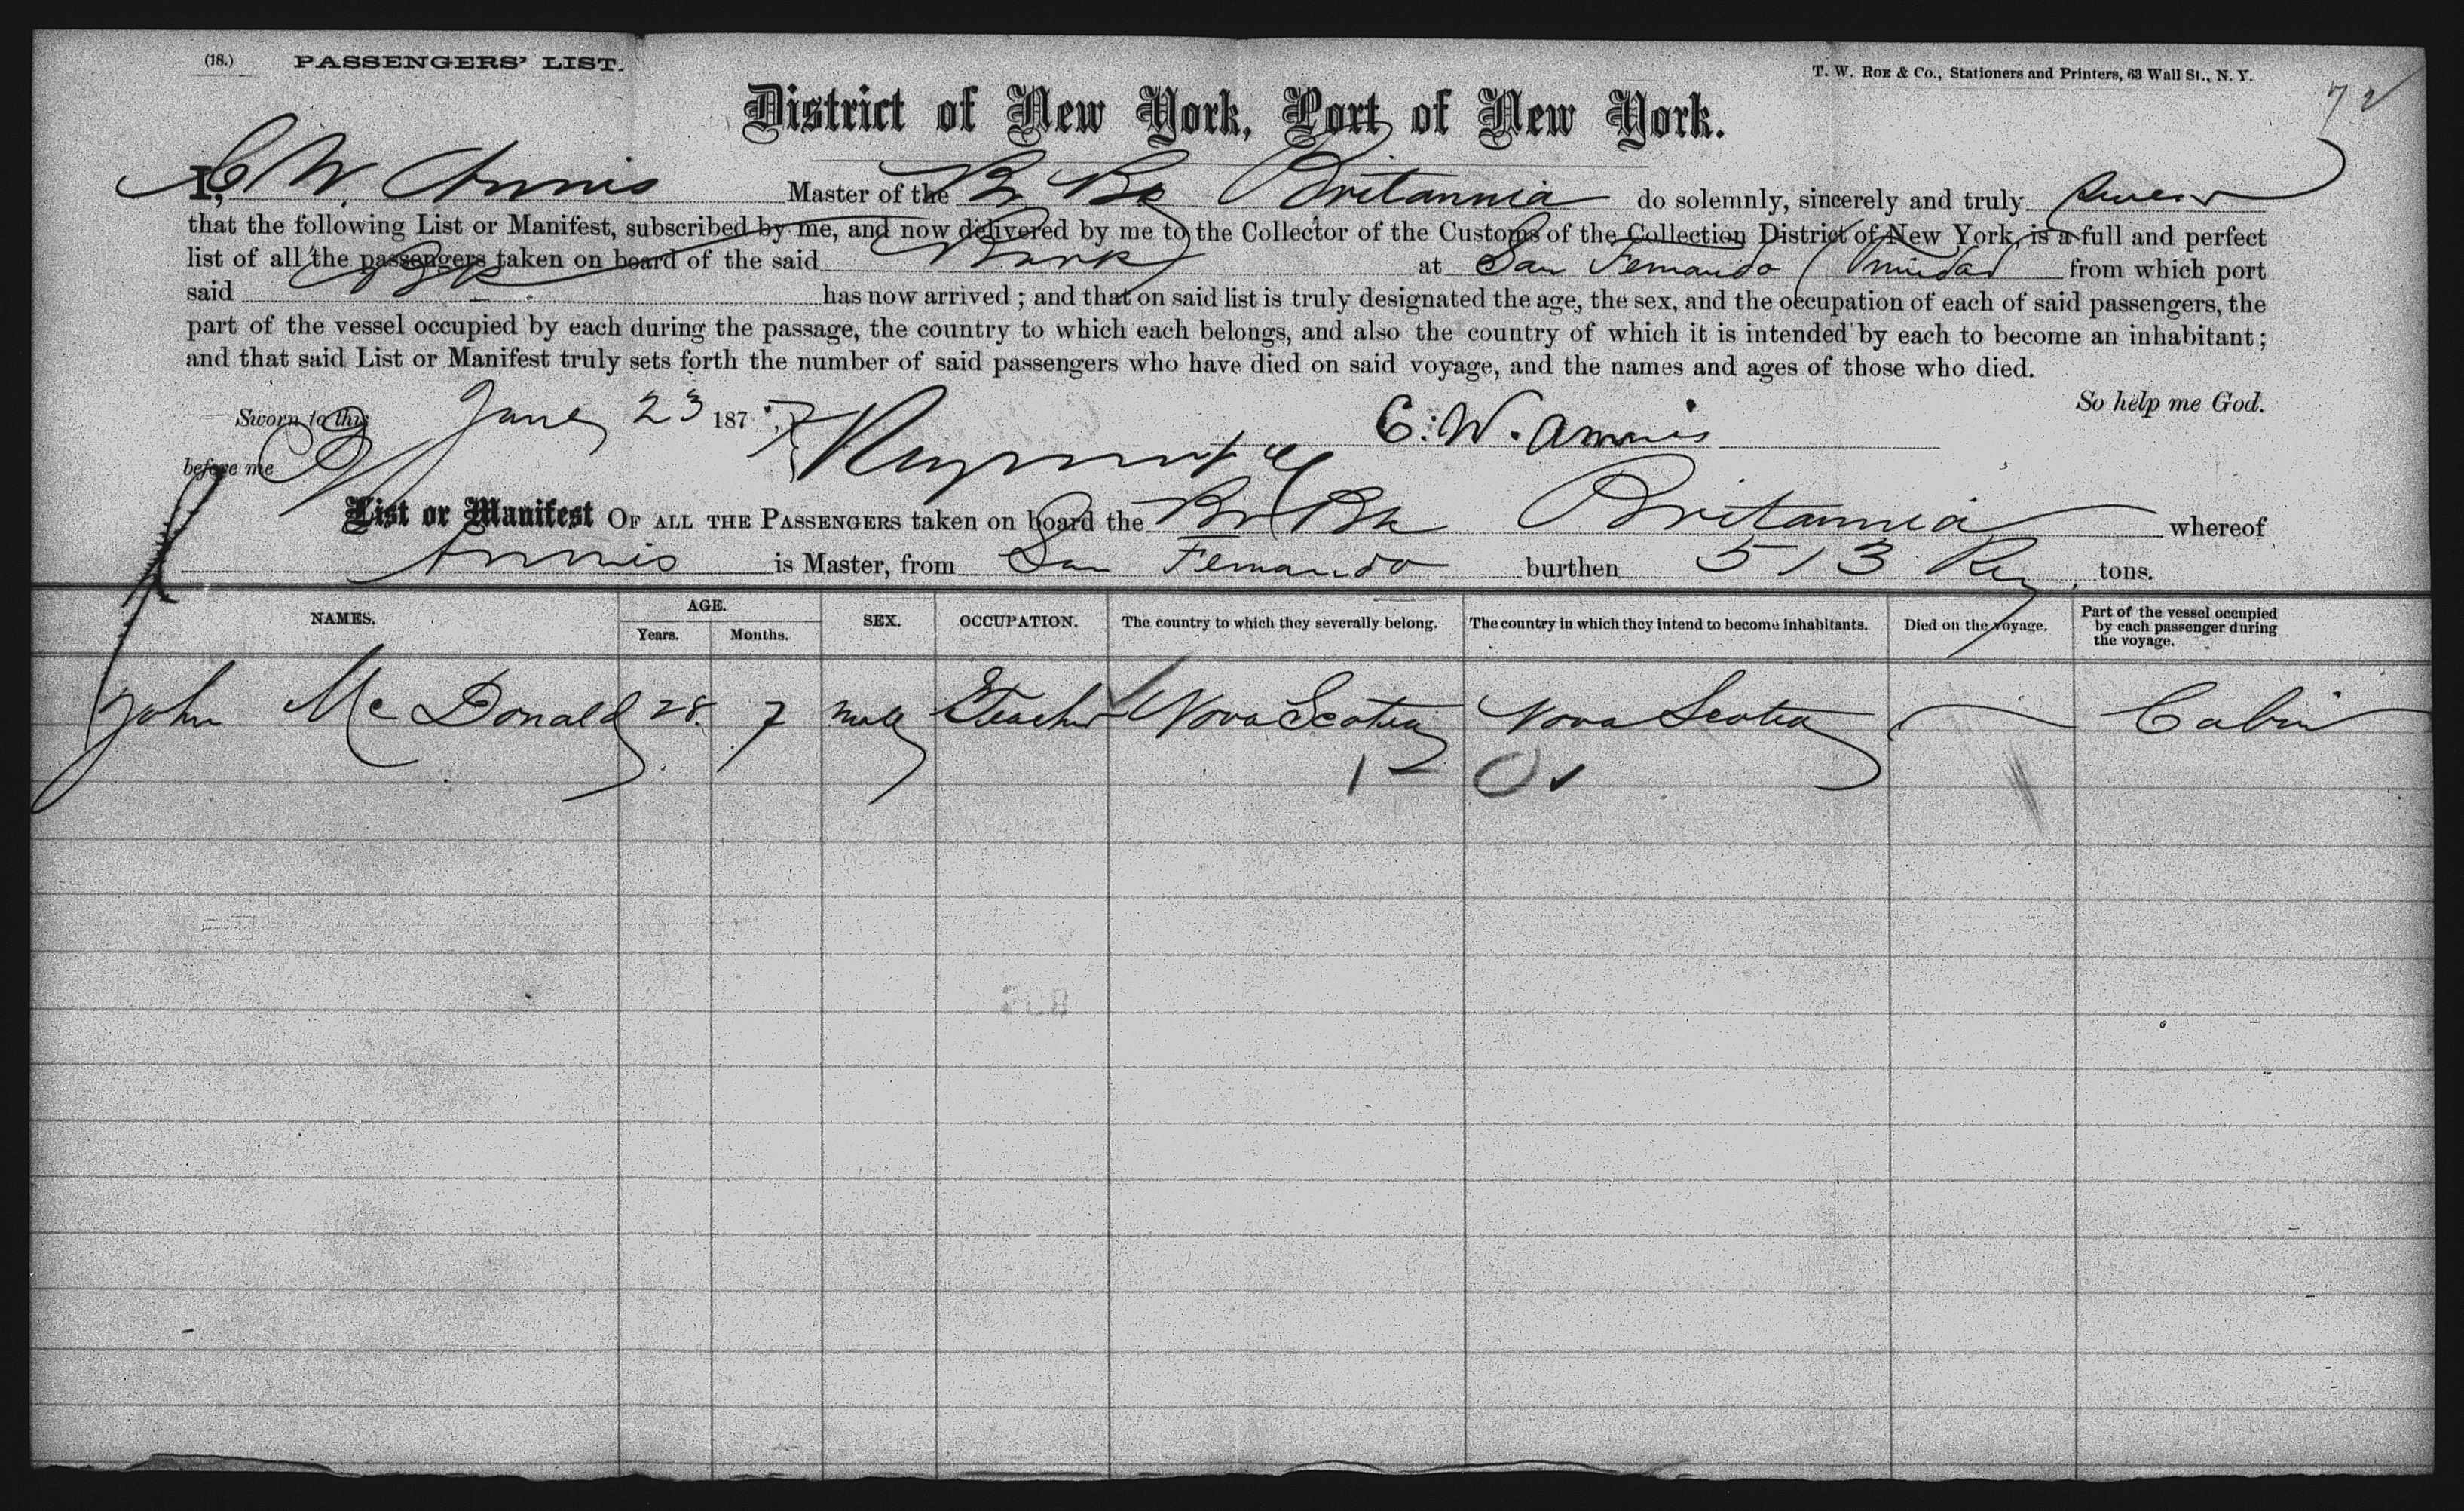 (18.) PASSENGERS' LIST. T. W. ROE & CO., Stationers and Printers, 63 Wall St., N. Y.
72
District of New York, Port of New York.
I, C. W. Annis Master of the Br Bk Britannia do solemnly, sincerely and truly swear
that the following List or Manifest, subscribed by me, and now delivered by me to the Collector of the Customs of the Collection District of New York, is a full and perfect
list of all the passengers taken on board of the said Bark at San Fernando Trinidad from which port
said Bk has now arrived ; and that on said list is truly designated the age, the sex, and the occupation of each of said passengers, the
part of the vessel occupied by each during the passage, the country to which each belongs, and also the country of which it is intended by each to become an inhabitant;
and that said List or Manifest truly sets forth the number of said passengers who have died on said voyage, and the names and ages of those who died.
So help me God.
Sworn to this June 23 187 C. W. Annis
before me
List or Manifest OF ALL THE PASSENGERS taken on board the Br Bk Britannia whereof
Annis is Master, from San Fernando burthen 513 Reg tons.
NAMES. AGE. Years. Months. SEX. OCCUPATION. The country to which they severally belong. The country in which they intend to become inhabitants. Died on the voyage. Part of the vessel occupied by each passenger during the voyage.
John McDonald 28. 7 male Teacher Nova Scotia Nova Scotia Cabin